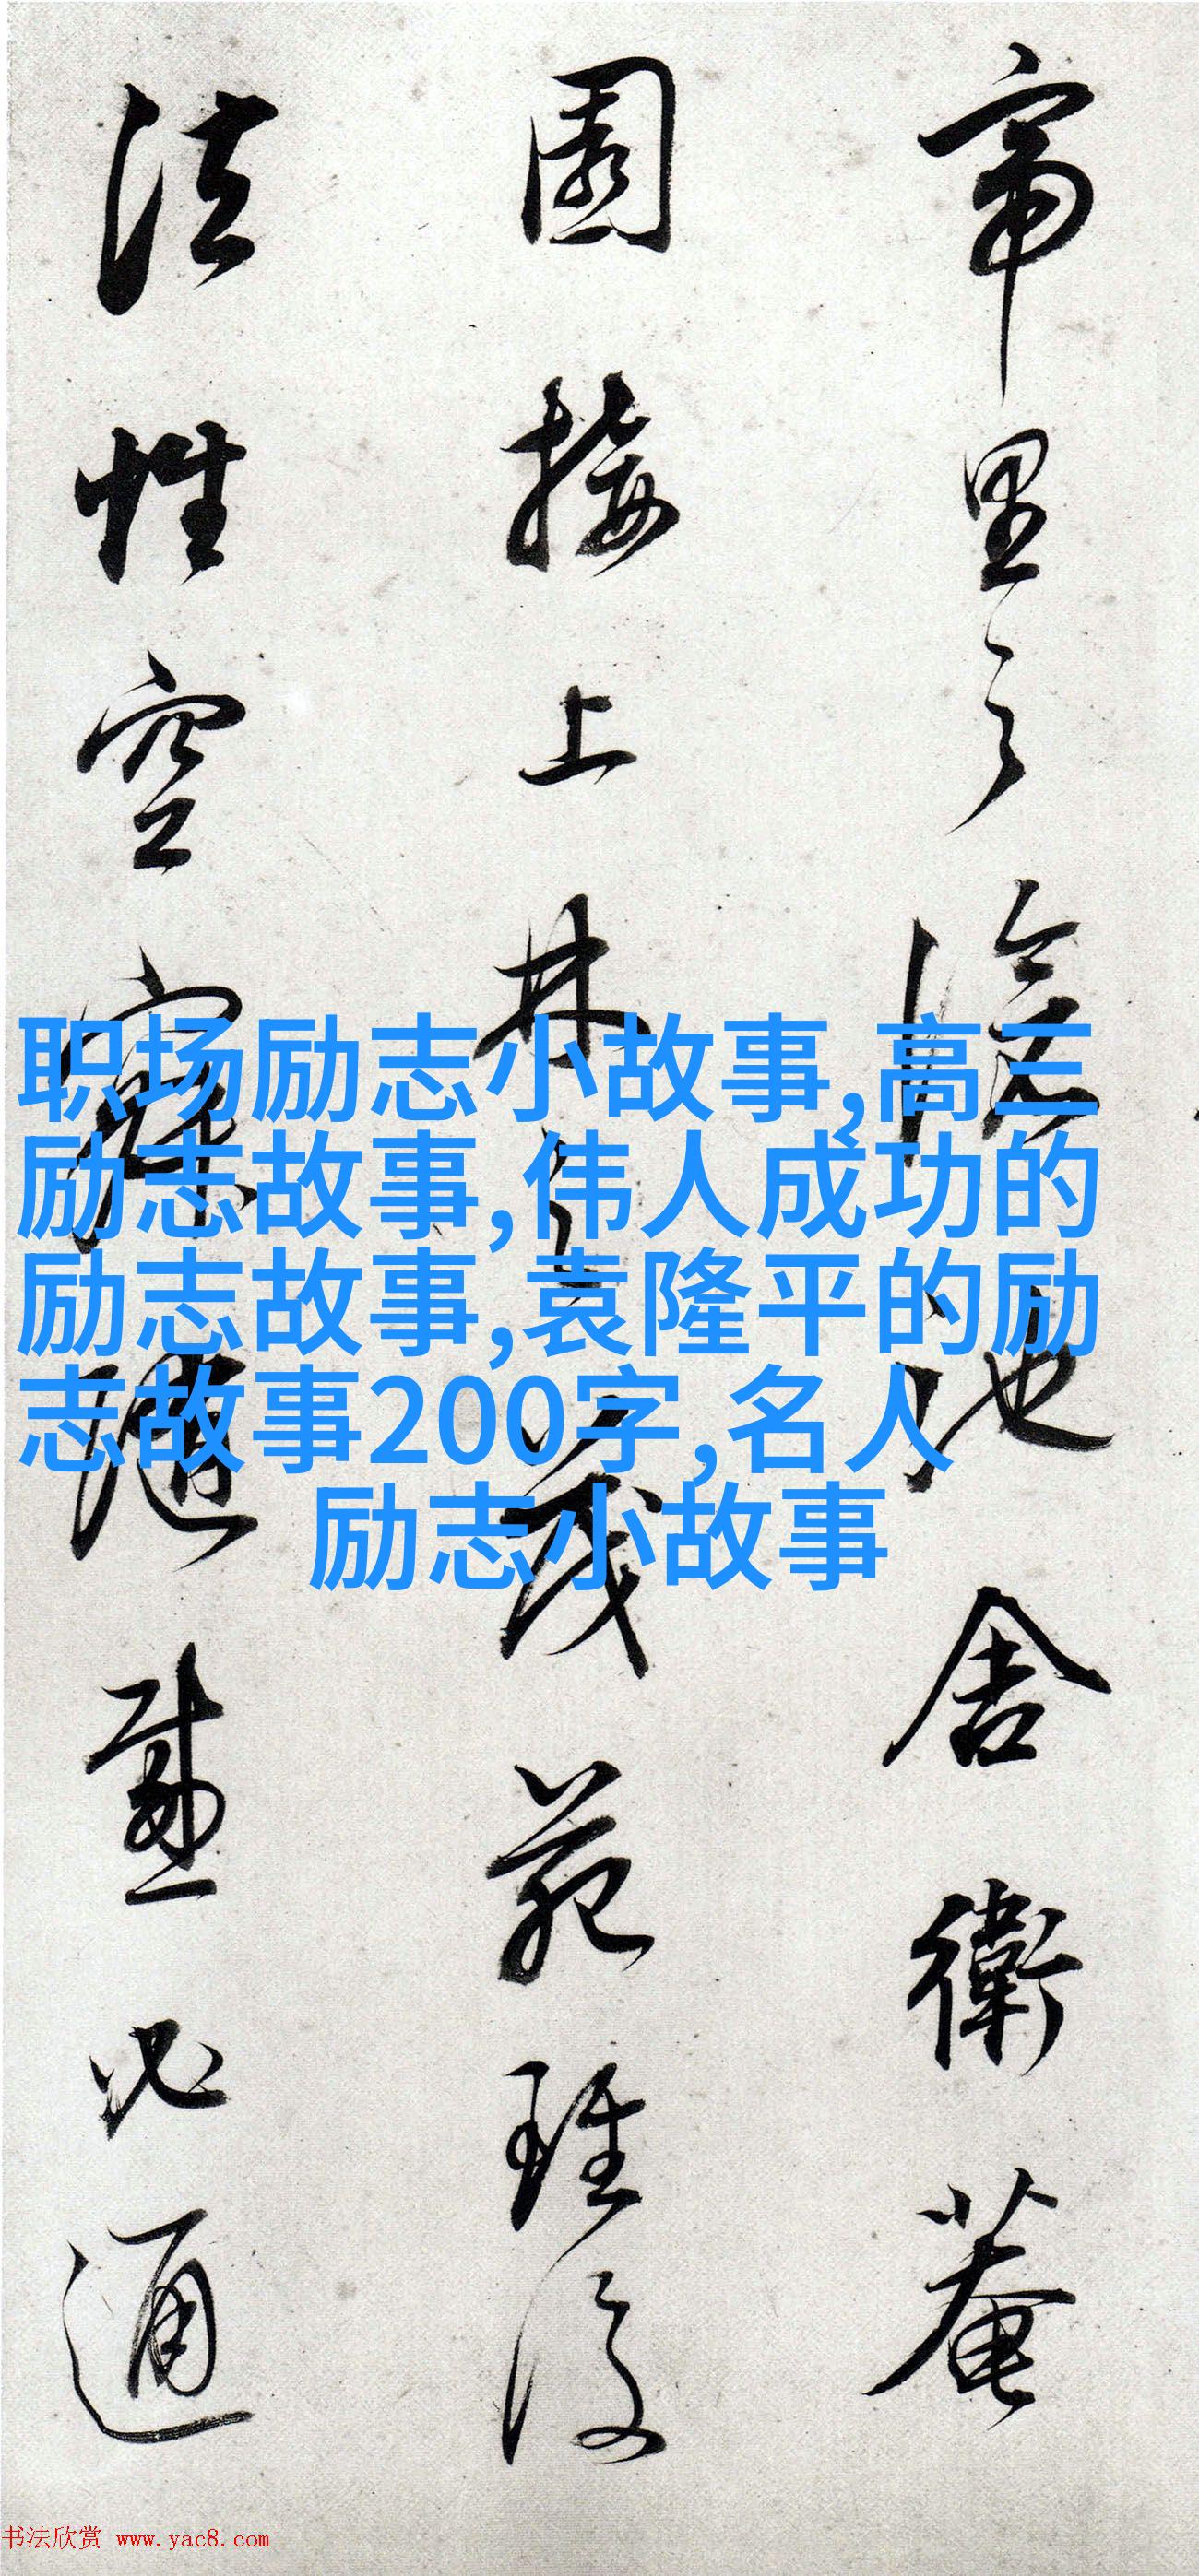 帝里之
舍衛菴
園接上林
茂苑
法性空寂隨感必通
职场励志小故事,高三
励志故事,伟人成功的
励志故事,袁隆平的励
志故事200字,名人
励志小故事
书法欣赏 www.yac8.com